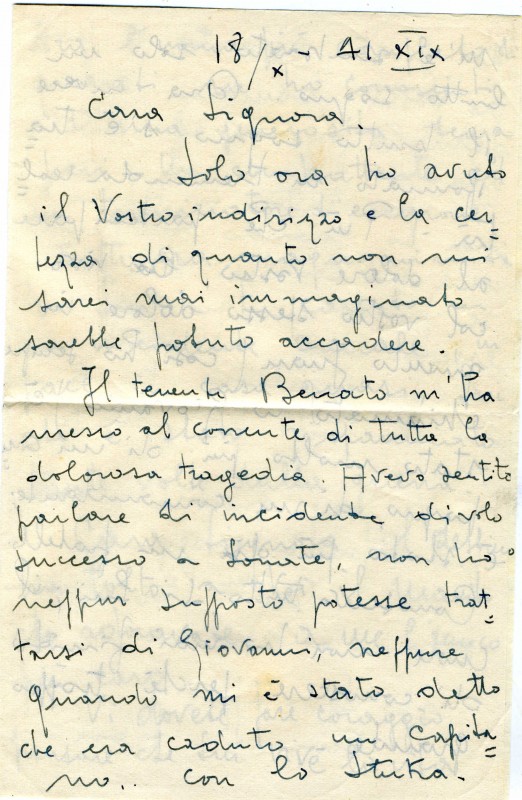 18/x - 41 XIX
Cara Signora.
Solo ora ho avuto
il Vostro indirizzo e la cer=
tezza di quanto non mi
sarei mai immaginato
sarebbe potuto accadere.
Il tenente Beccato m'ha
messo al corrente di tutta la
dolorosa tragedia. Avevo sentito
parlare di incidente di volo
successo a Lonate, non ho
neppur supposto potesse trat=
tarsi di Giovanni, neppure
quando mi è stato detto
che era caduto un Capita=
no.. con lo Stuka.